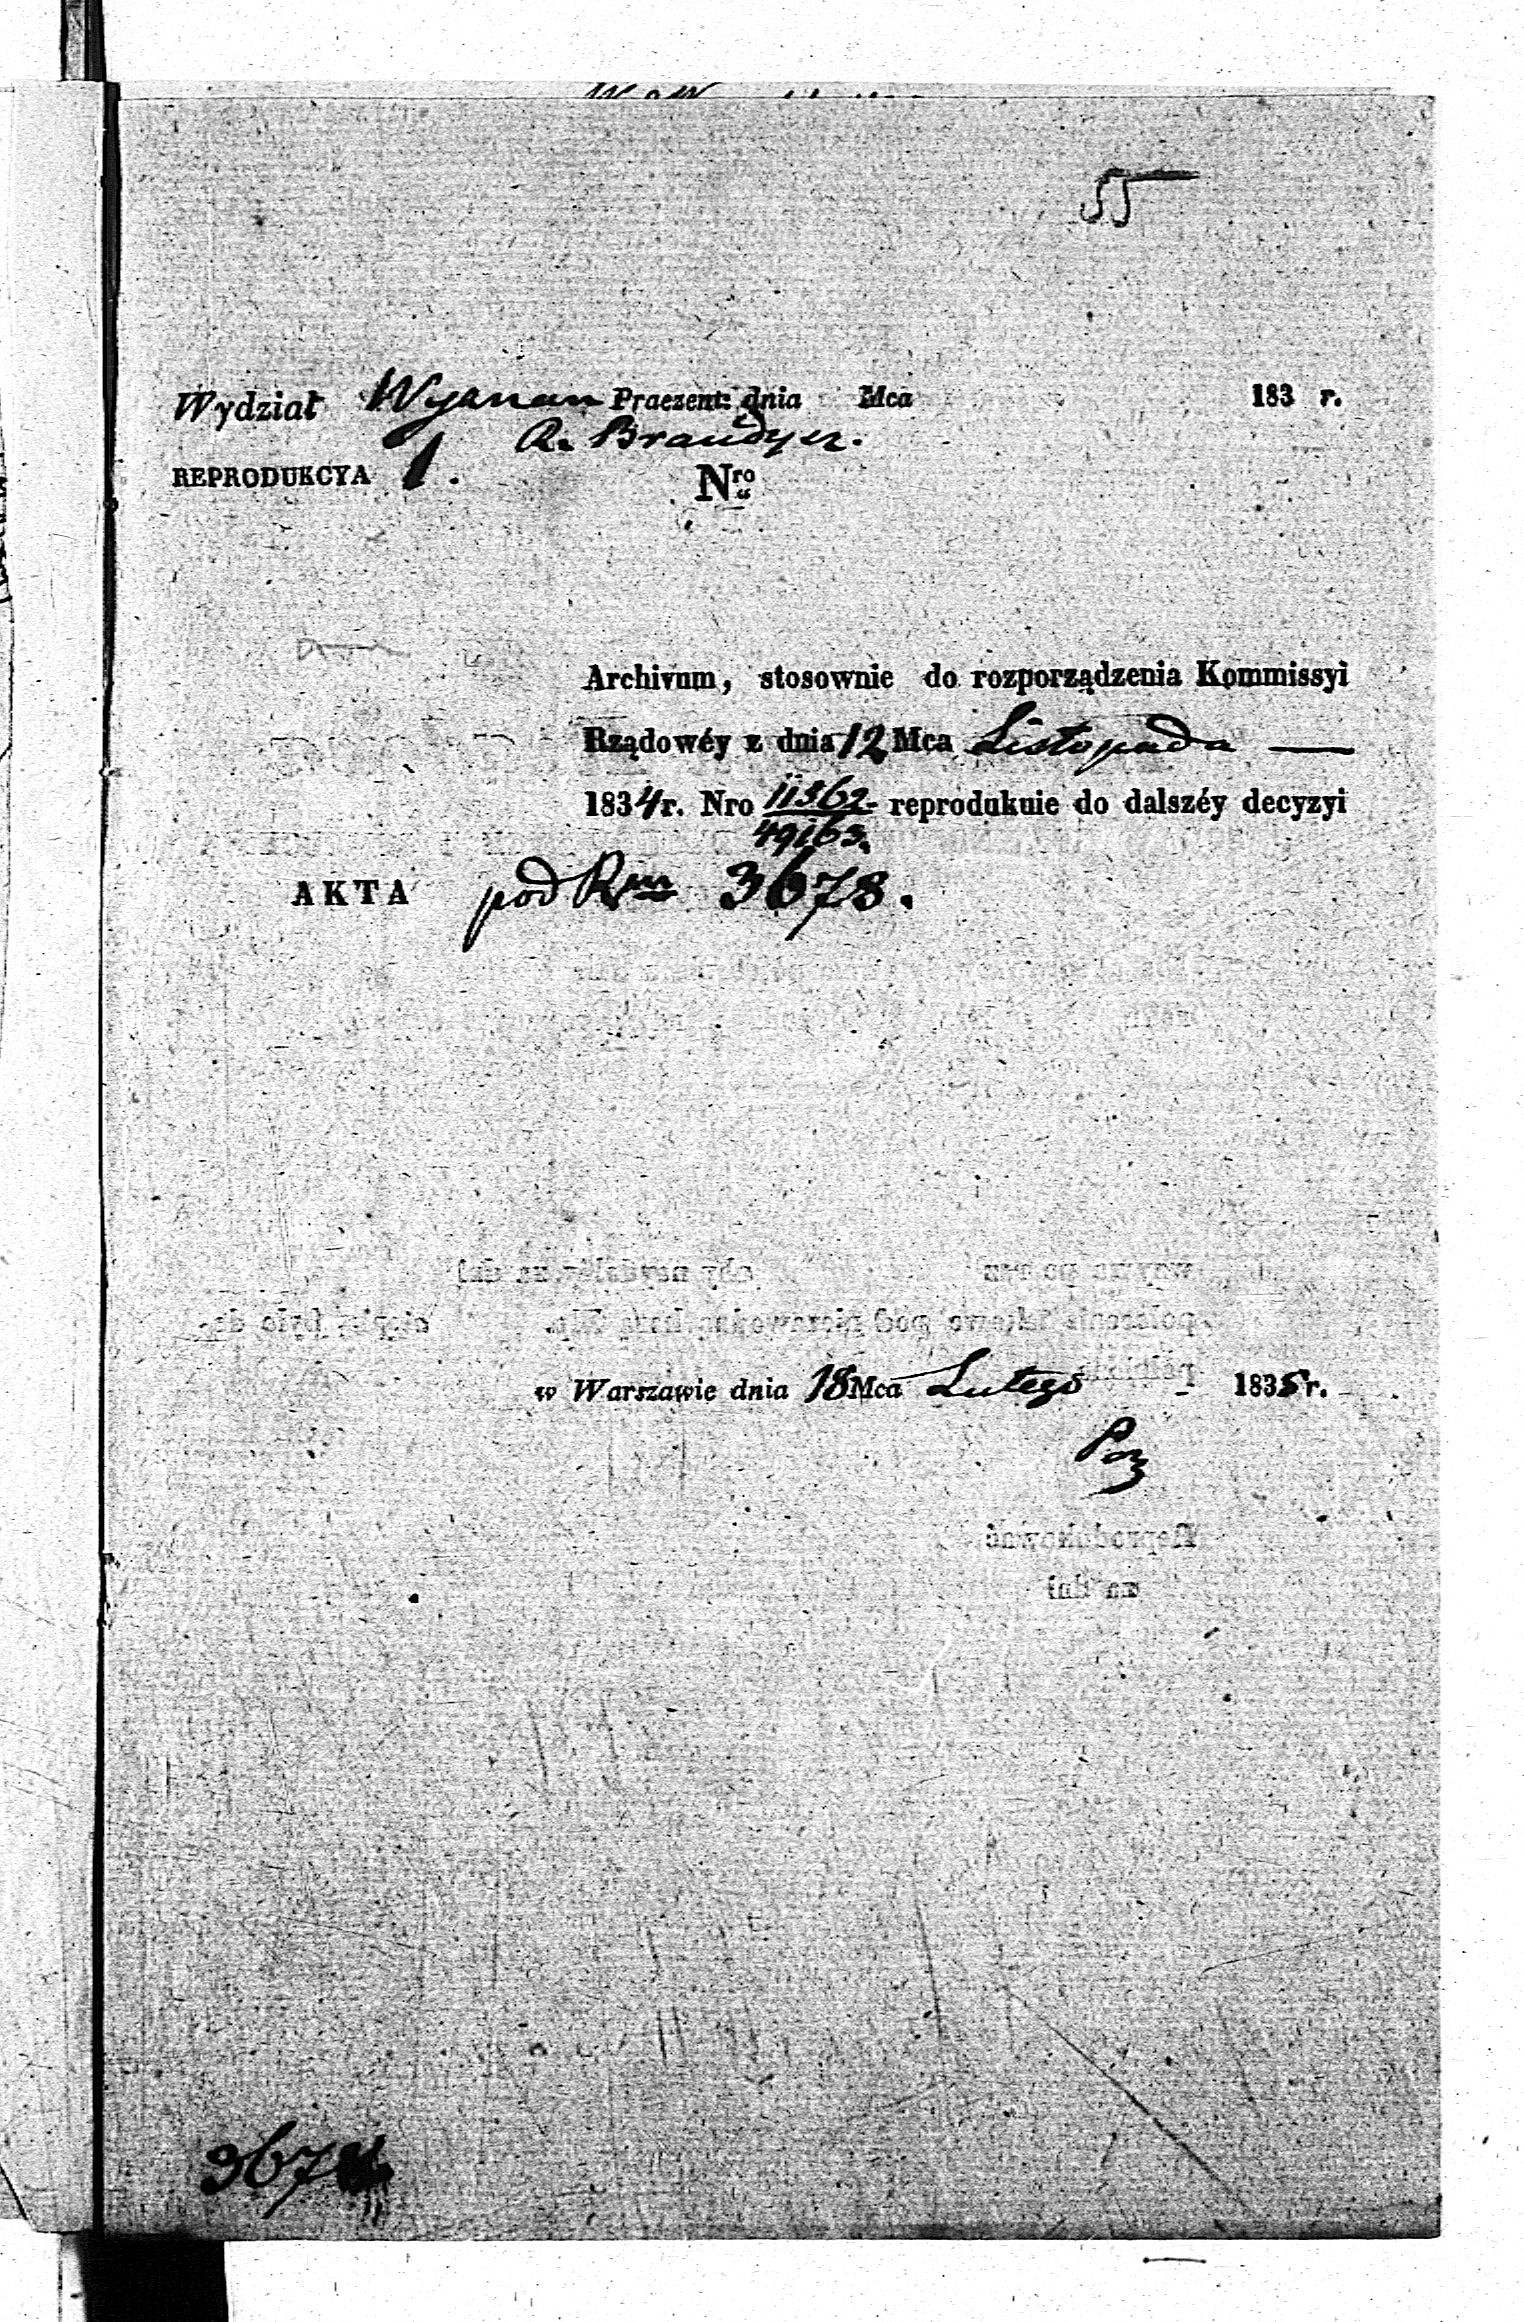 55
Wydział Wyznań Praezent: dnia Mca 183 r.
R. Brandysz.
REPRODUKCYA 1. Nro
Archivum, stosownie do rozporządzenia Kommissyi
Rządowéy z dnia 12 Mca Listopada —
1834 r. Nro 11362 reprodukuie do dalszéy decyzyi
49163.
AKTA pod 3678.
w Warszawie dnia 18 Mca Lutego - 1835 r.
3678